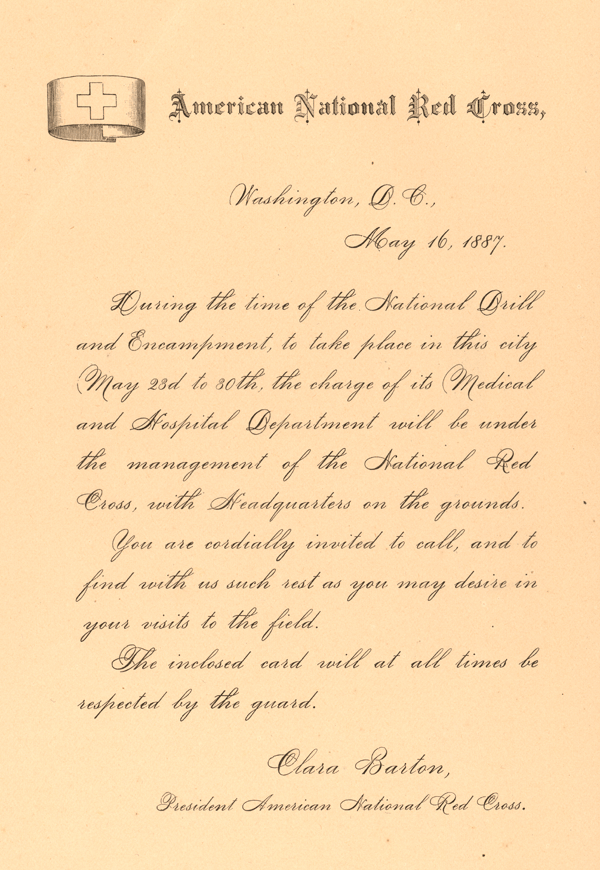 American National Red Cross,
Washington, D. C.,
May 16, 1887.
During the time of the National Drill
and Encampment, to take place in this city
May 23d to 30th, the charge of its Medical
and Hospital Department will be under
the management of the National Red
Cross, with Headquarters on the grounds.
You are cordially invited to call, and to
find with us such rest as you may desire in
your visits to the field.
The inclosed card will at all times be
respected by the guard.
Clara Barton,
President American National Red Cross.